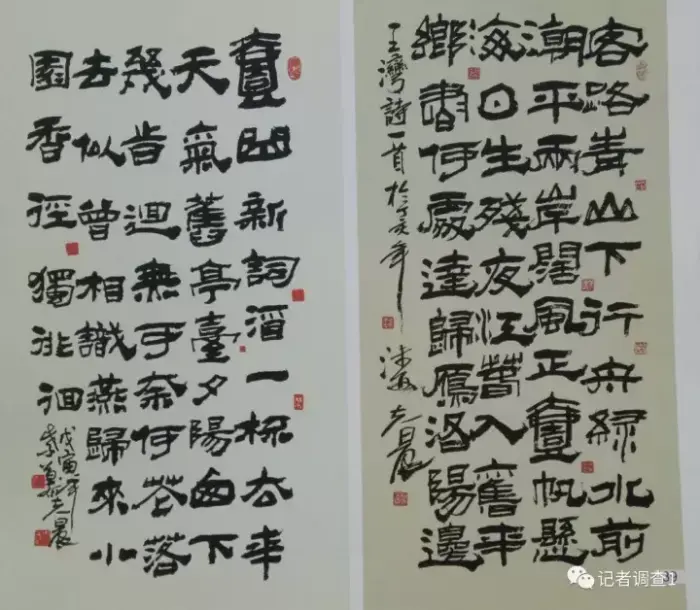 客路青山下行舟綠水前
潮平兩岸闊風正壹帆懸
海日生殘夜江萅入舊年
鄉書何處達歸鴈洛陽邊
王灣詩一首於丁亥年
志晨
壹曲新詞酒一杯去年
天氣舊亭臺夕陽西下
幾旹迴無可奈何花落
去似曾相識燕歸來小
園香徑獨徘徊
戊寅年
志晨
记者调查1